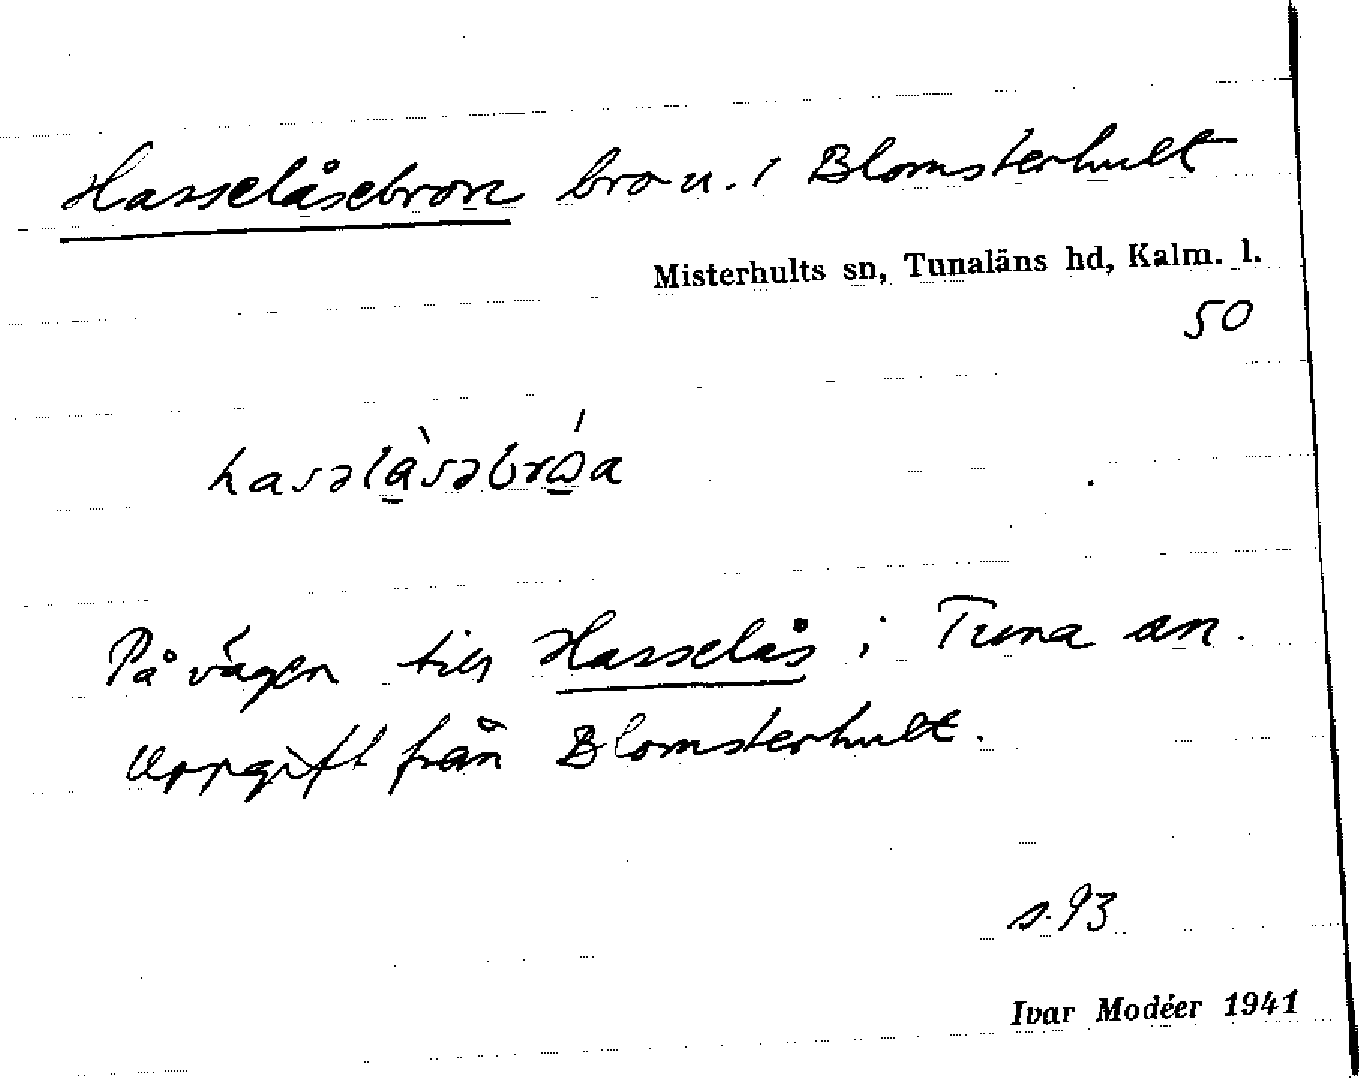 Hasselåsebron bro u. i Blomsterhult
Misterhults sn, Tunaläns hd, Kalm. l.
50
hasəlàsəbrǿa
På vägen till Hasselås i Tuna sn.
Uppgift från Blomsterhult.
s. 93
Ivar Modéer 1941